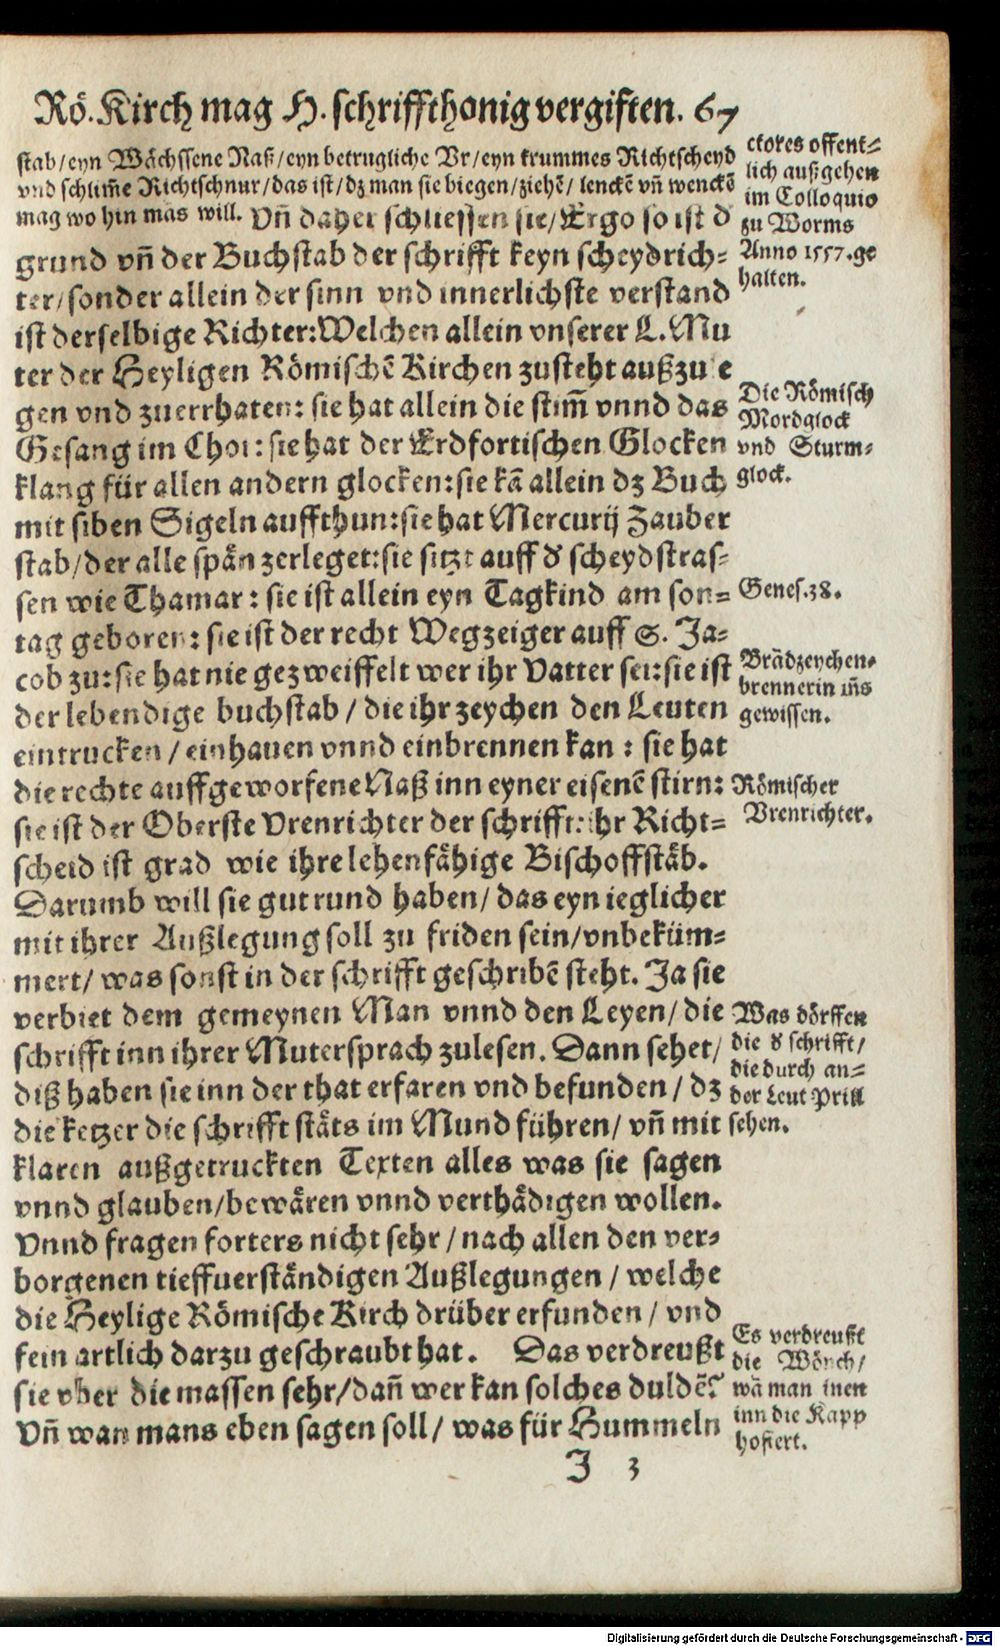 Rö. Kirch mag H. schriffthonig vergiften. 67
stab/eyn Wächssene Naß/eyn betrugliche Vr/eyn krummes Richtscheyd
vnd schlim̃e Richtschnur/das ist/dz man sie biegen/ziehẽ/lenckẽ vñ wenckẽ
mag wo hin mās will. Vñ daher schliessen sie/Ergo so ist d
grund vñ der Buchstab der schrifft keyn scheydrich⸗
ter/sonder allein der sinn vnd innerlichste verstand
ist derselbige Richter: Welchen allein vnserer L. Mu
ter der Heyligen Römischẽ Kirchen zusteht außzu e
gen vnd zuerrhaten: sie hat allein die stim̃ vnnd das
Gesang im Chor: sie hat der Erdfortischen Glocken
klang für allen andern glocken: sie kã allein dz Buch
mit siben Sigeln auffthun: sie hat Mercurij Zauber
stab/der alle spän zerleget: sie sitzt auff d scheydstras⸗
sen wie Thamar: sie ist allein eyn Tagkind am son⸗
tag geboren: sie ist der recht Wegzeiger auff S. Ja⸗
cob zu: sie hat nie gezweiffelt wer ihr Vatter sei: sie ist
der lebendige buchstab/die ihr zeychen den Leuten
eintrucken/einhauen vnnd einbrennen kan: sie hat
die rechte auffgeworfene Naß inn eyner eisenẽ stirn:
sie ist der Oberste Vrenrichter der schrifft: ihr Richt⸗
scheid ist grad wie ihre lehenfähige Bischoffstäb.
Darumb will sie gut rund haben/das eyn ieglicher
mit ihrer Außlegung soll zu friden sein/vnbeküm⸗
mert/was sonst in der schrifft geschribẽ steht. Ja sie
verbiet dem gemeynen Man vnnd den Leyen/die
schrifft inn ihrer Mutersprach zulesen. Dann sehet/
diß haben sie inn der that erfaren vnd befunden/dz
die ketzer die schrifft stäts im Mund führen/vñ mit
klaren außgetruckten Texten alles was sie sagen
vnnd glauben/bewären vnnd verthädigen wollen.
Vnnd fragen forters nicht sehr/nach allen den ver⸗
borgenen tieffuerständigen Außlegungen/welche
die Heylige Römische Kirch drüber erfunden/vnd
fein artlich darzu geschraubt hat. Das verdreußt
sie vber die massen sehr/dañ wer kan solches duldẽ?
Vñ wan mans eben sagen soll/was für Hummeln
J 3
ctores offent⸗
lich außgehen
im Colloquio
zu Worms
Anno 1557. ge
halten.
Die Römisch
Mordglock
vnd Sturm⸗
glock.
Genes. 38.
Brãdzeychen⸗
brennerin iñs
gewissen.
Römischer
Vrenrichter.
Was dörffen
die d schrifft/
die durch an⸗
der Leut Prill
sehen.
Es verdreußt
die Mönch/
wã man inen
inn die Kapp
hofiert.
Digitalisierung gefördert durch die Deutsche Forschungsgemeinschaft - DFG